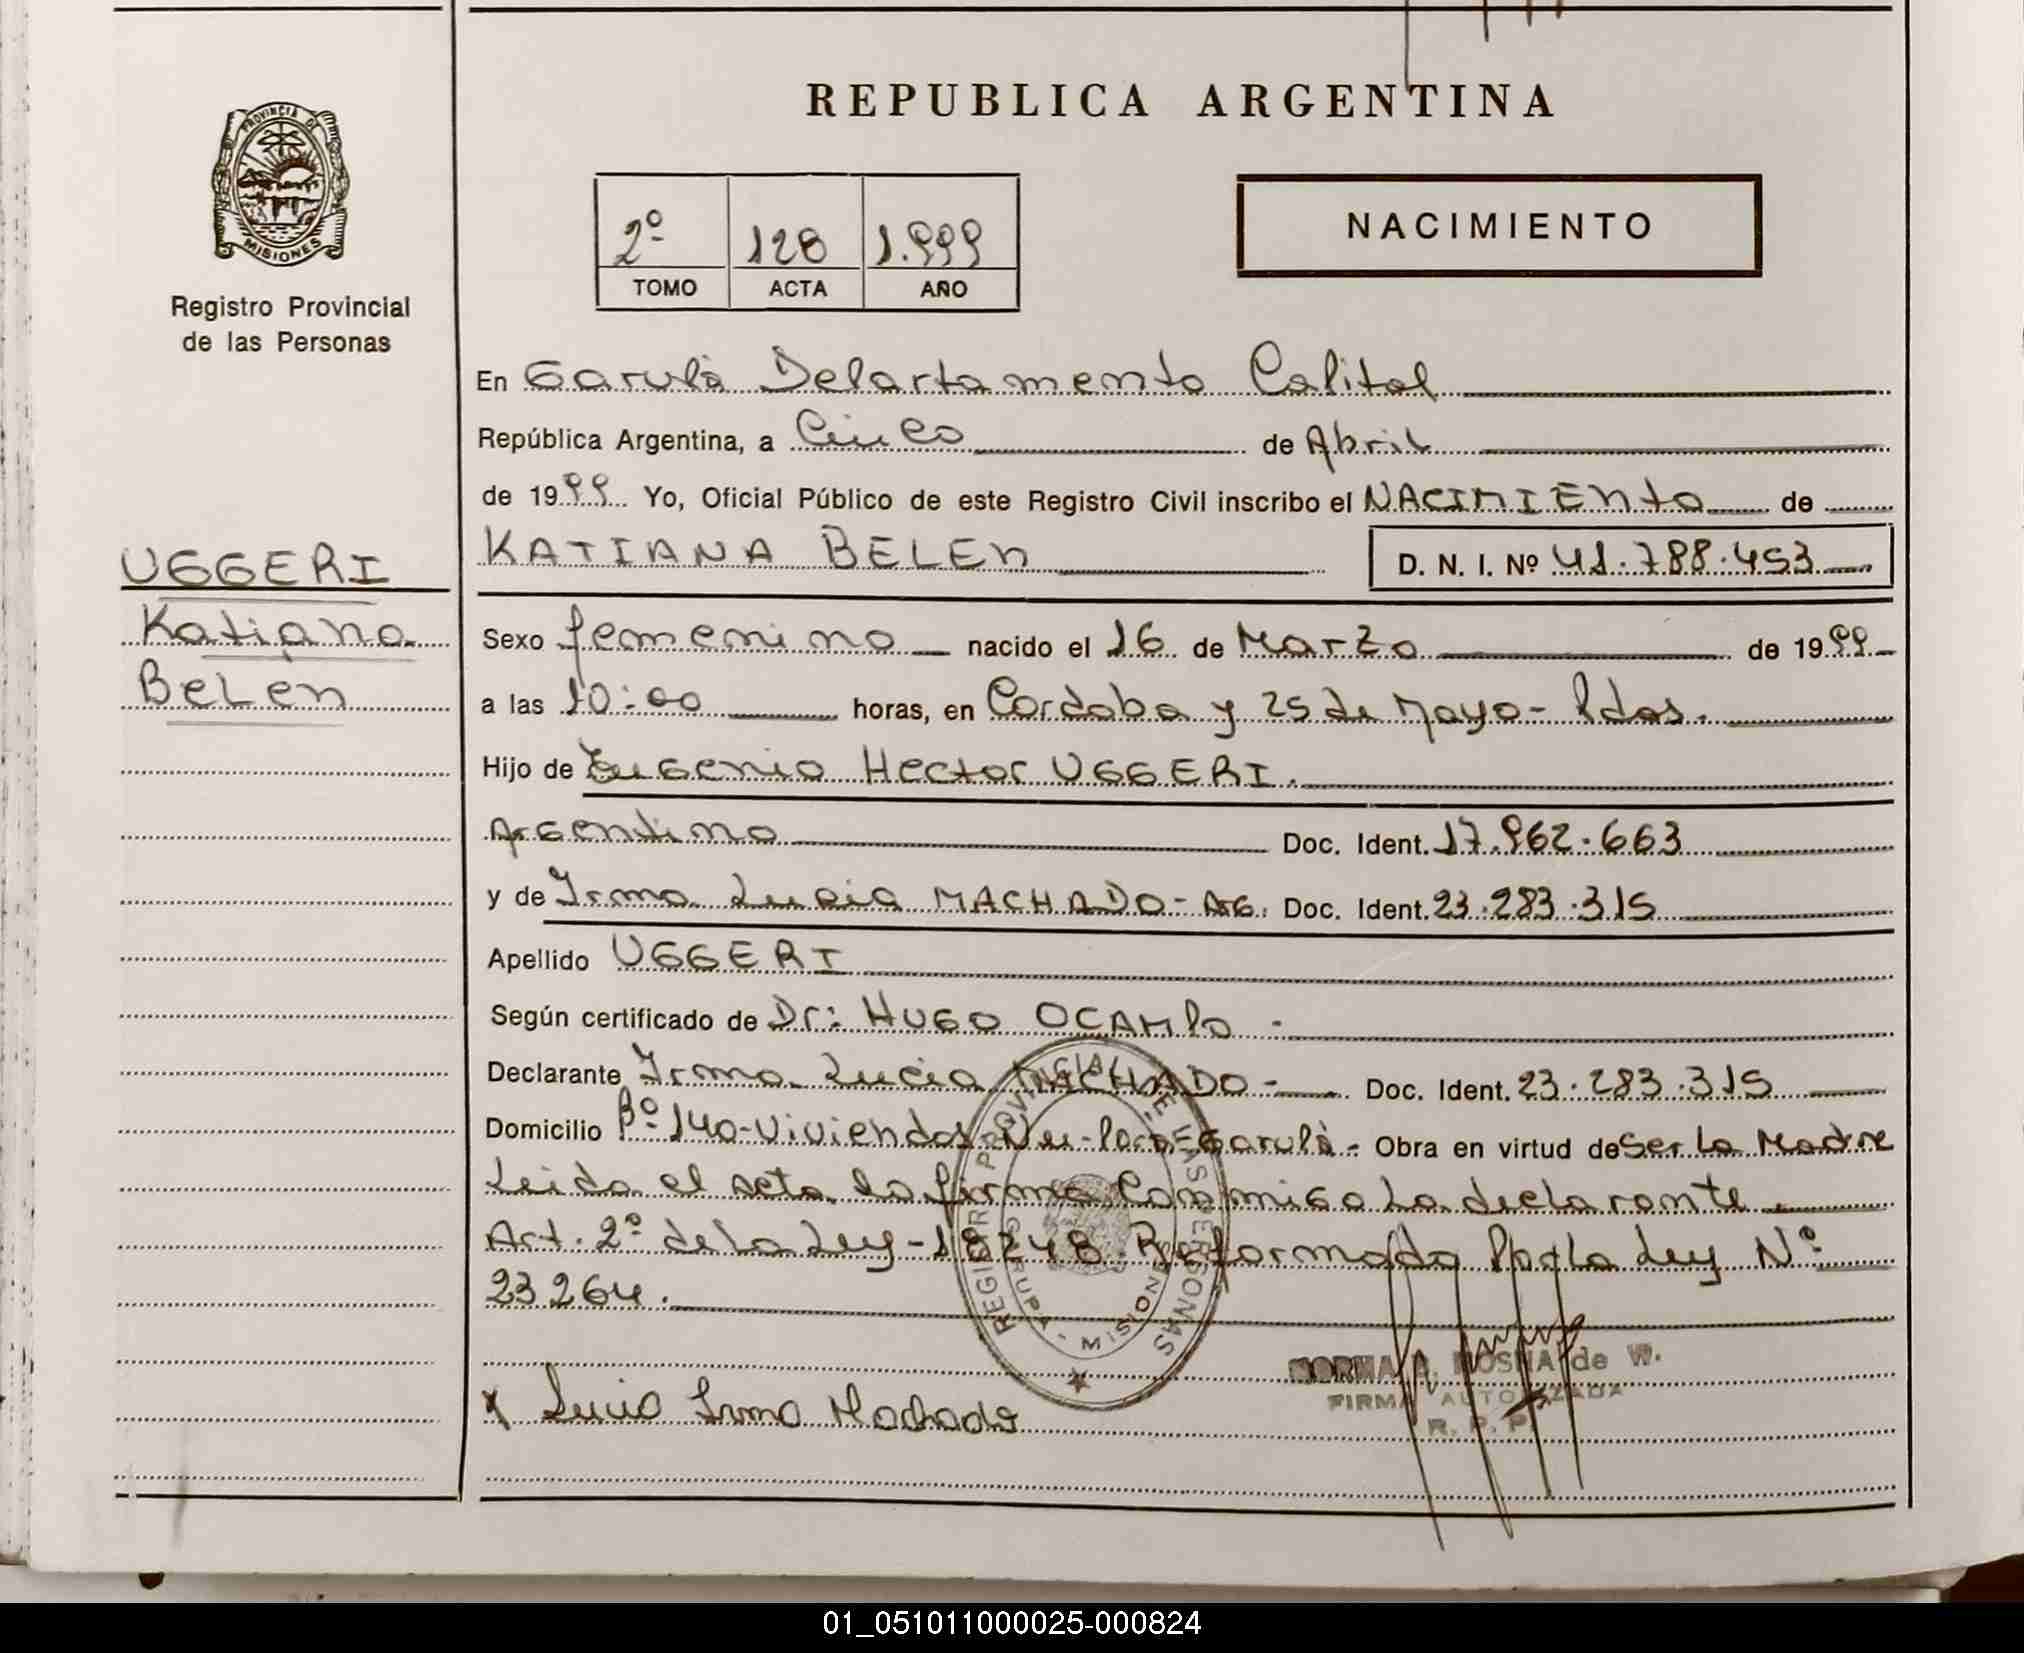 REPUBLICA ARGENTINA
PROVINCIA DE
MISIONES
Registro Provincial
de las Personas
2º 128 1.999
TOMO ACTA AÑO
NACIMIENTO
En Garupá Departamento Capital
República Argentina, a Cinco de Abril
de 1999 Yo, Oficial Público de este Registro Civil inscribo el NACIMIENTO de
KATIANA BELEN D. N. I. Nº 41.788.453
UGGERI
Katiana
Belen
Sexo femenino nacido el 16 de Marzo de 1999
a las 10:00 horas, en Cordoba y 25 de Mayo - Pdas.
Hijo de Eugenio Hector UGGERI.
Argentino Doc. Ident. 17.962.663
y de Irma Lucia MACHADO - Arg. Doc. Ident. 23.283.315
Apellido UGGERI
Según certificado de Dr: HUGO OCAMPO -
Declarante Irma Lucia MACHADO - Doc. Ident. 23.283.315
Domicilio Bº 140-Viviendas Garupá - Obra en virtud de Ser La Madre
Leida el acta la firma Conmigo La declarante.
Art. 2º de la Ley - 18248 Reformada Por la Ley Nº
23264.
REGISTRO PROVINCIAL DE LAS PERSONAS
GARUPA - MISIONES
NORMA de W.
FIRMA AUTORIZADA
R. P. P.
x Lucia Irma Machado
01_051011000025-000824